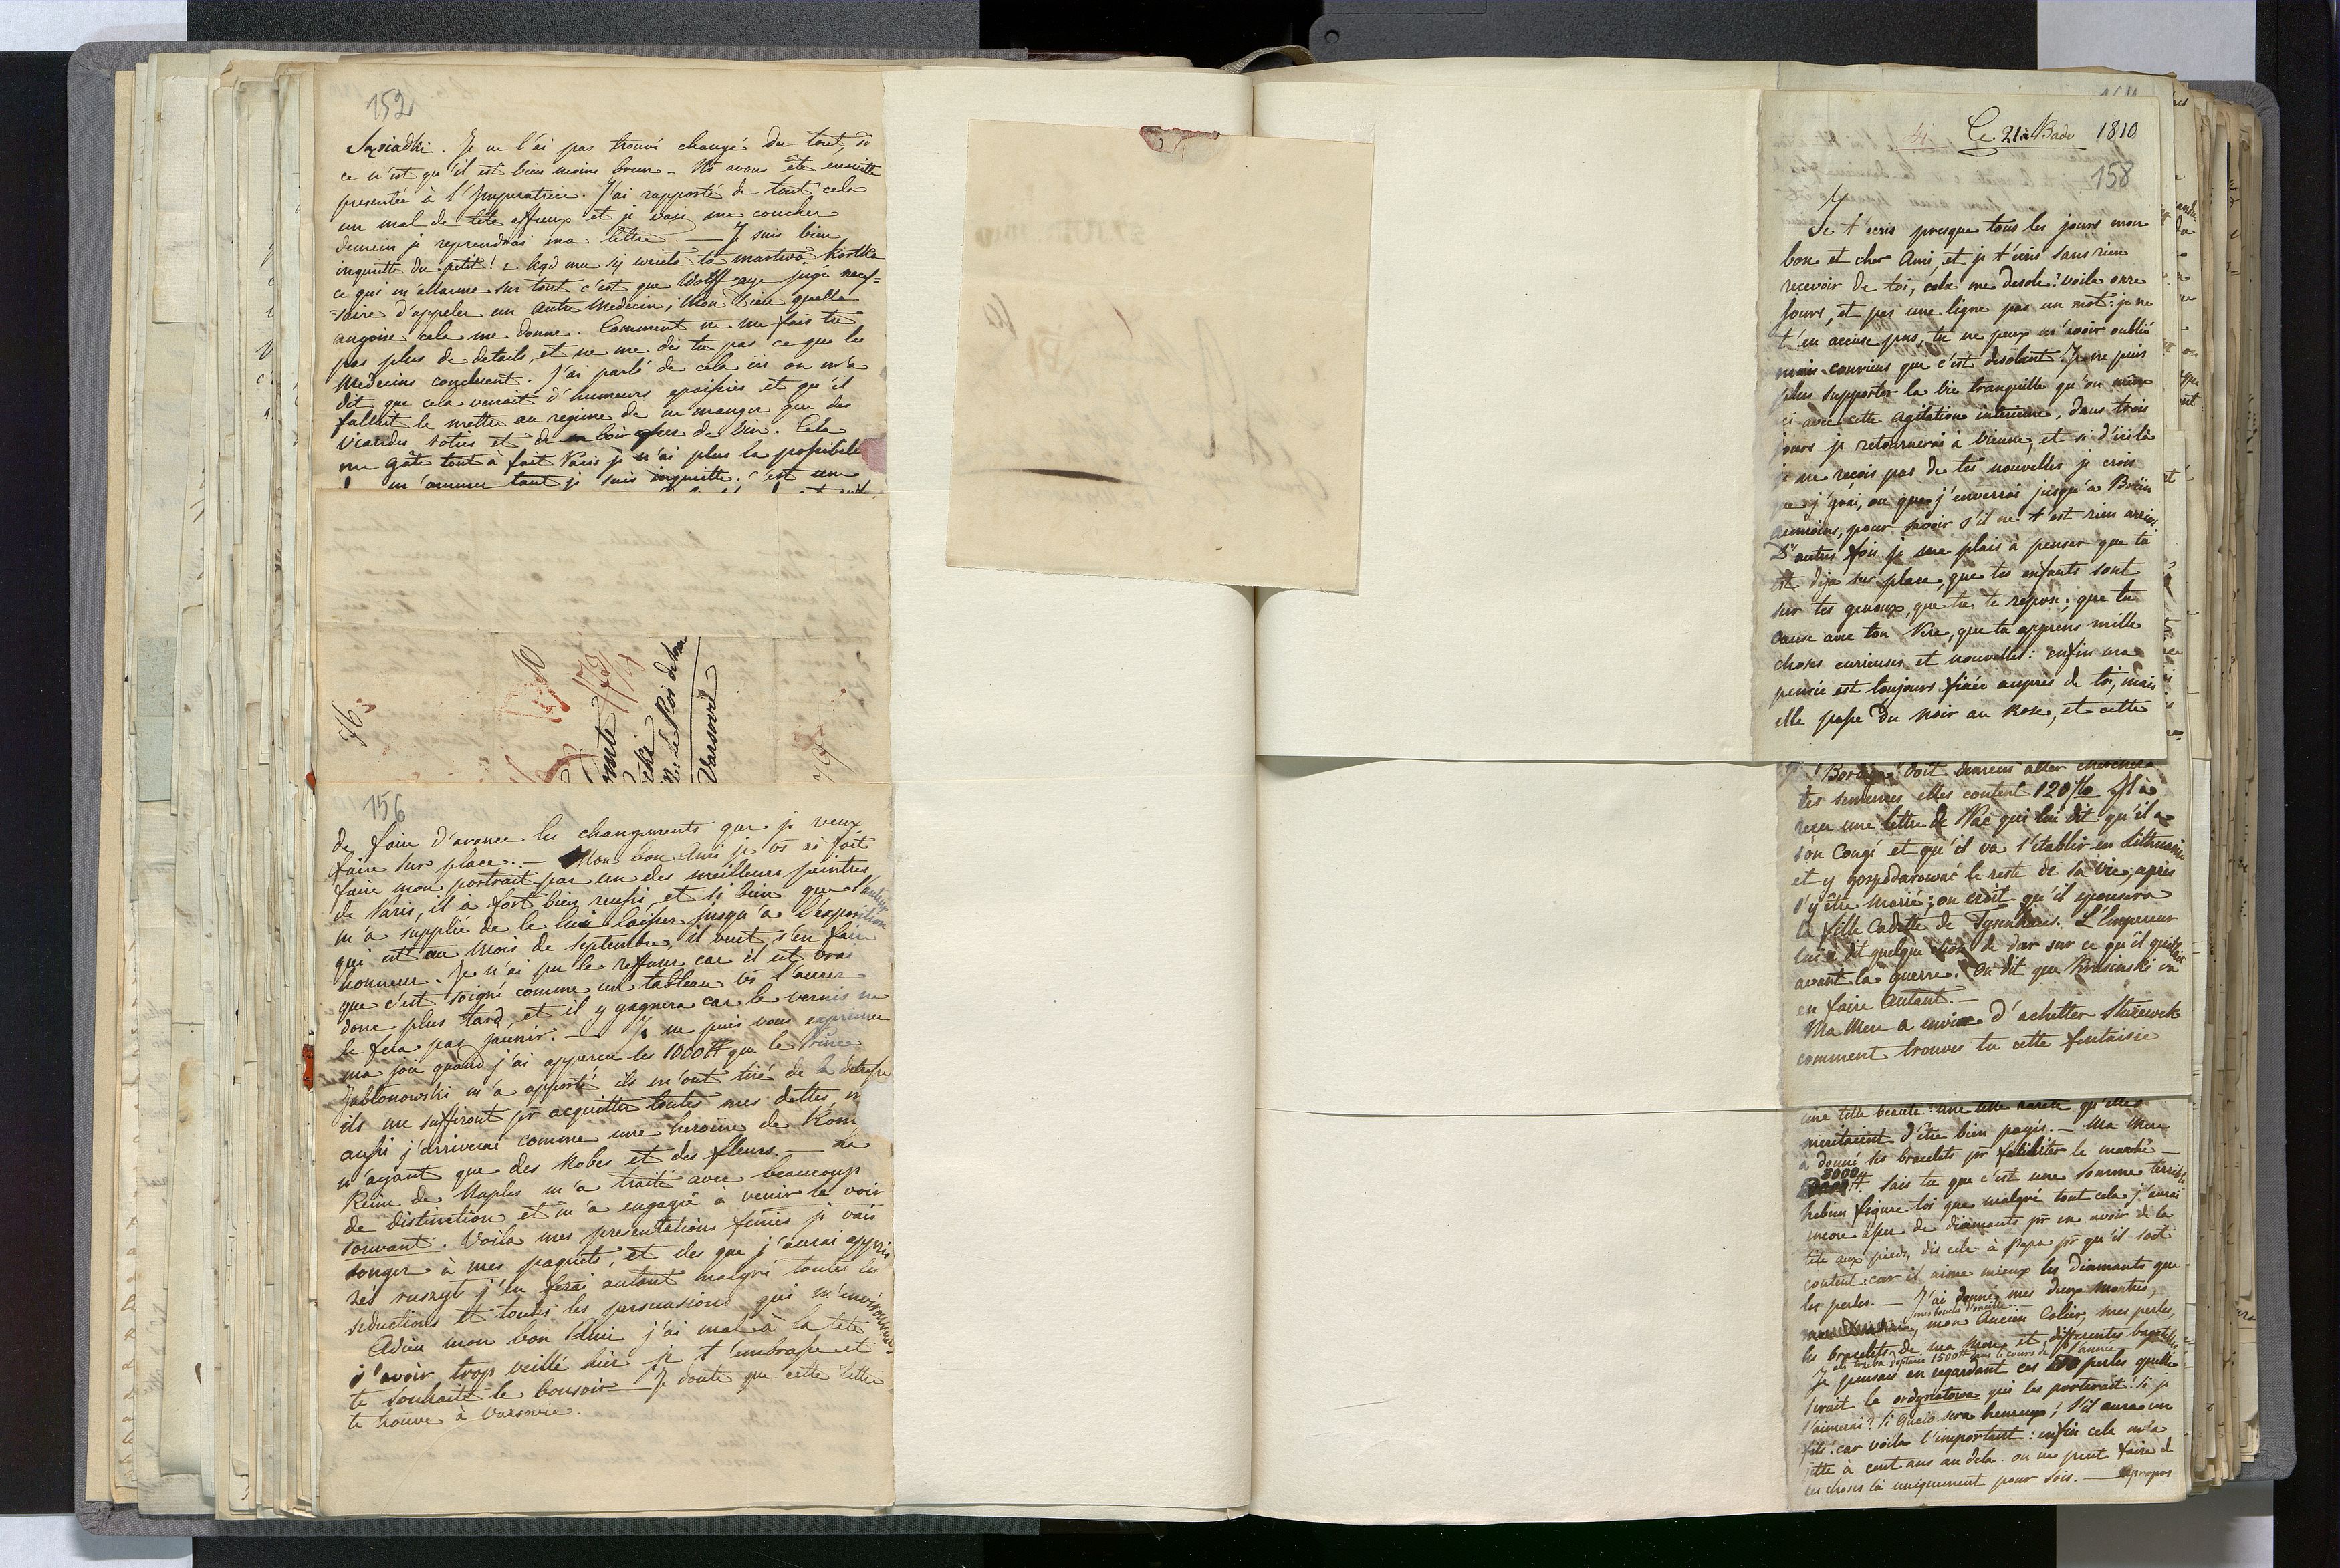 152
Sąsiadki. Je ne l'ai pas trouvé changé du tout, si
ce n'est qu'il est bien moins brun – Ns avons été ensuitte
presentée à l'Imperatrice. J'ai rapporté de tout cela
un mal de tête affreux et je vais me coucher
demain je reprendrai ma lettre. — Je suis bien
inquiette du petit!
ce qui m'allarme sur tout c'est que Wolff aye jugé neces=
=saire d'appeler un autre Medecin; Mon Dieu quelle
angoise cela me donne. Comment ne me fais tu
pas plus de details, et ne me dis tu pas ce que les
Medecins concluent. J'ai parlé de cela ici on m'a
dit que cela venait d'humeurs epaissies et qu'il
fallait le mettre au regime de ne manger que des
viandes roties et de boir peu de vin. Cela
me gâte tout à fait Paris je n'ai plus la possibilité
m'amuser tant je suis inquiette. c'est une
Varsovie
156
de faire d'avance les changments que je veux
faire sur place. — Mon bon Ami je vs ai fait
faire mon portrait par un des meilleurs peintres
de Paris, il a fort bien reussi, et si bien que l'auteur
m'a supplié de le lui laisser jusqu'à l'exposition
qui est au mois de septembre, il veut s'en faire
honneur. Je n'ai pu le reffuser car il est vrai
que c'est soigné comme un tableau vs l'aurez
donc plus tard, et il y gagnera car le vernis ne
le fera pas jaunir. — Je ne puis vous exprimer
ma joie quand j'ai apperçu les 1000# que le Prince
Jabłonowski m'a apporté ils m'ont tiré de la detresse
ils me suffiront pr acquitter toutes mes dettes,
aussi j'arriverai comme une heroine de Rom
n'ayant que des Robes et des fleurs. — La
Reine de Naples m'a traité avec beaucoup
de distinction et m'a engagée à venir la voir
souvant. Voila mes presentations finies je vais
songer à mes paquets, et des que j'aurai appris
żeś ruszył j'en ferai autant malgré toutes les
seductions et toutes les persuasions qui m'environnent
Adieu mon bon Ami j'ai mal à la tête
d'avoir trop veillé hier je t'embrasse et
te souhaite le bonsoir – Je doute que cette lettre
te trouve à Varsovie.
Le 21 à Bade 1810
158
Je t'ecris presque tous les jours mon
bon et cher Ami, et je t'ecris sans rien
recevoir de toi, cela me desole! voila onze
jours, et pas une ligne pas un mot: je ne
t'en accuse pas, tu ne peux m'avoir oublié
mais conviens que c'est desolant. Je ne puis
plus supporter la vie tranquille qu'on mene
ici avec cette agitation interieure, dans trois
jours je retournerai à Vienne, et si d'ici là
je ne reçois pas de tes nouvelles je crois
que j'irai, ou que j'enverrai jusqu'à Brün
aumoins, pour savoir s'il ne t'est rien arrivé.
D'autres fois je me plais à penser que tu
est deja sur place, que tes enfants sont
sur tes genoux, que tu te repose; que tu
cause avec ton Pere, que tu apprens mille
choses curieuses et nouvelles: enfin ma
pensée est toujours fixée auprès de toi, mais
elle passe du noir au rose, et cette
doit demain aller chercher
tes semences elles content 120 # Il a
reçu une lettre de Pac qui lui dit qu'il a
son Congé et qu'il va s'etablir en Lithuanie
et y gospodarować le reste de sa vie, après
s'y être marié; on croit qu'il épousera
la fille Cadette de Tysenhaus. L'Empereur
lui a dit quelque chose de dur sur ce qu'il quittait
avant la guerre. On dit que Krasinski va
en faire autant. —
Ma Mere a envie d'achetter
comment trouves tu cette fantaisie
une telle beauté une telle rareté qu'elles
meritaient d'être bien payés. — Ma Mere
a donné ses bracelets pr faciliter le marché —
3000 # sais tu que c'est une somme terrible
hebien figure toi que malgré tout cela j'aurai
encore assez de diamants pr en avoir de la
tête aux pieds, dis cela à Papa pr qu'il soit
content: car il aime mieux les diamants que
les perles. — J'ai donné mes deux montres,
mes boucles d'oreille
mon Ancien Colier, mes perles,
les bracelets de ma Mere et differentes bagatelles
Je pensais en regardant ces perles quelle
serait la ordynatowa qui les porterait! Si je
l'aimerai? Si Gucio sera heureux; s'il aura un
fils: car voila l'important: enfin cela m'a
jetté à cent ans au dela. on ne peut faire de
ces choses là uniquement pour sois. — Apropos